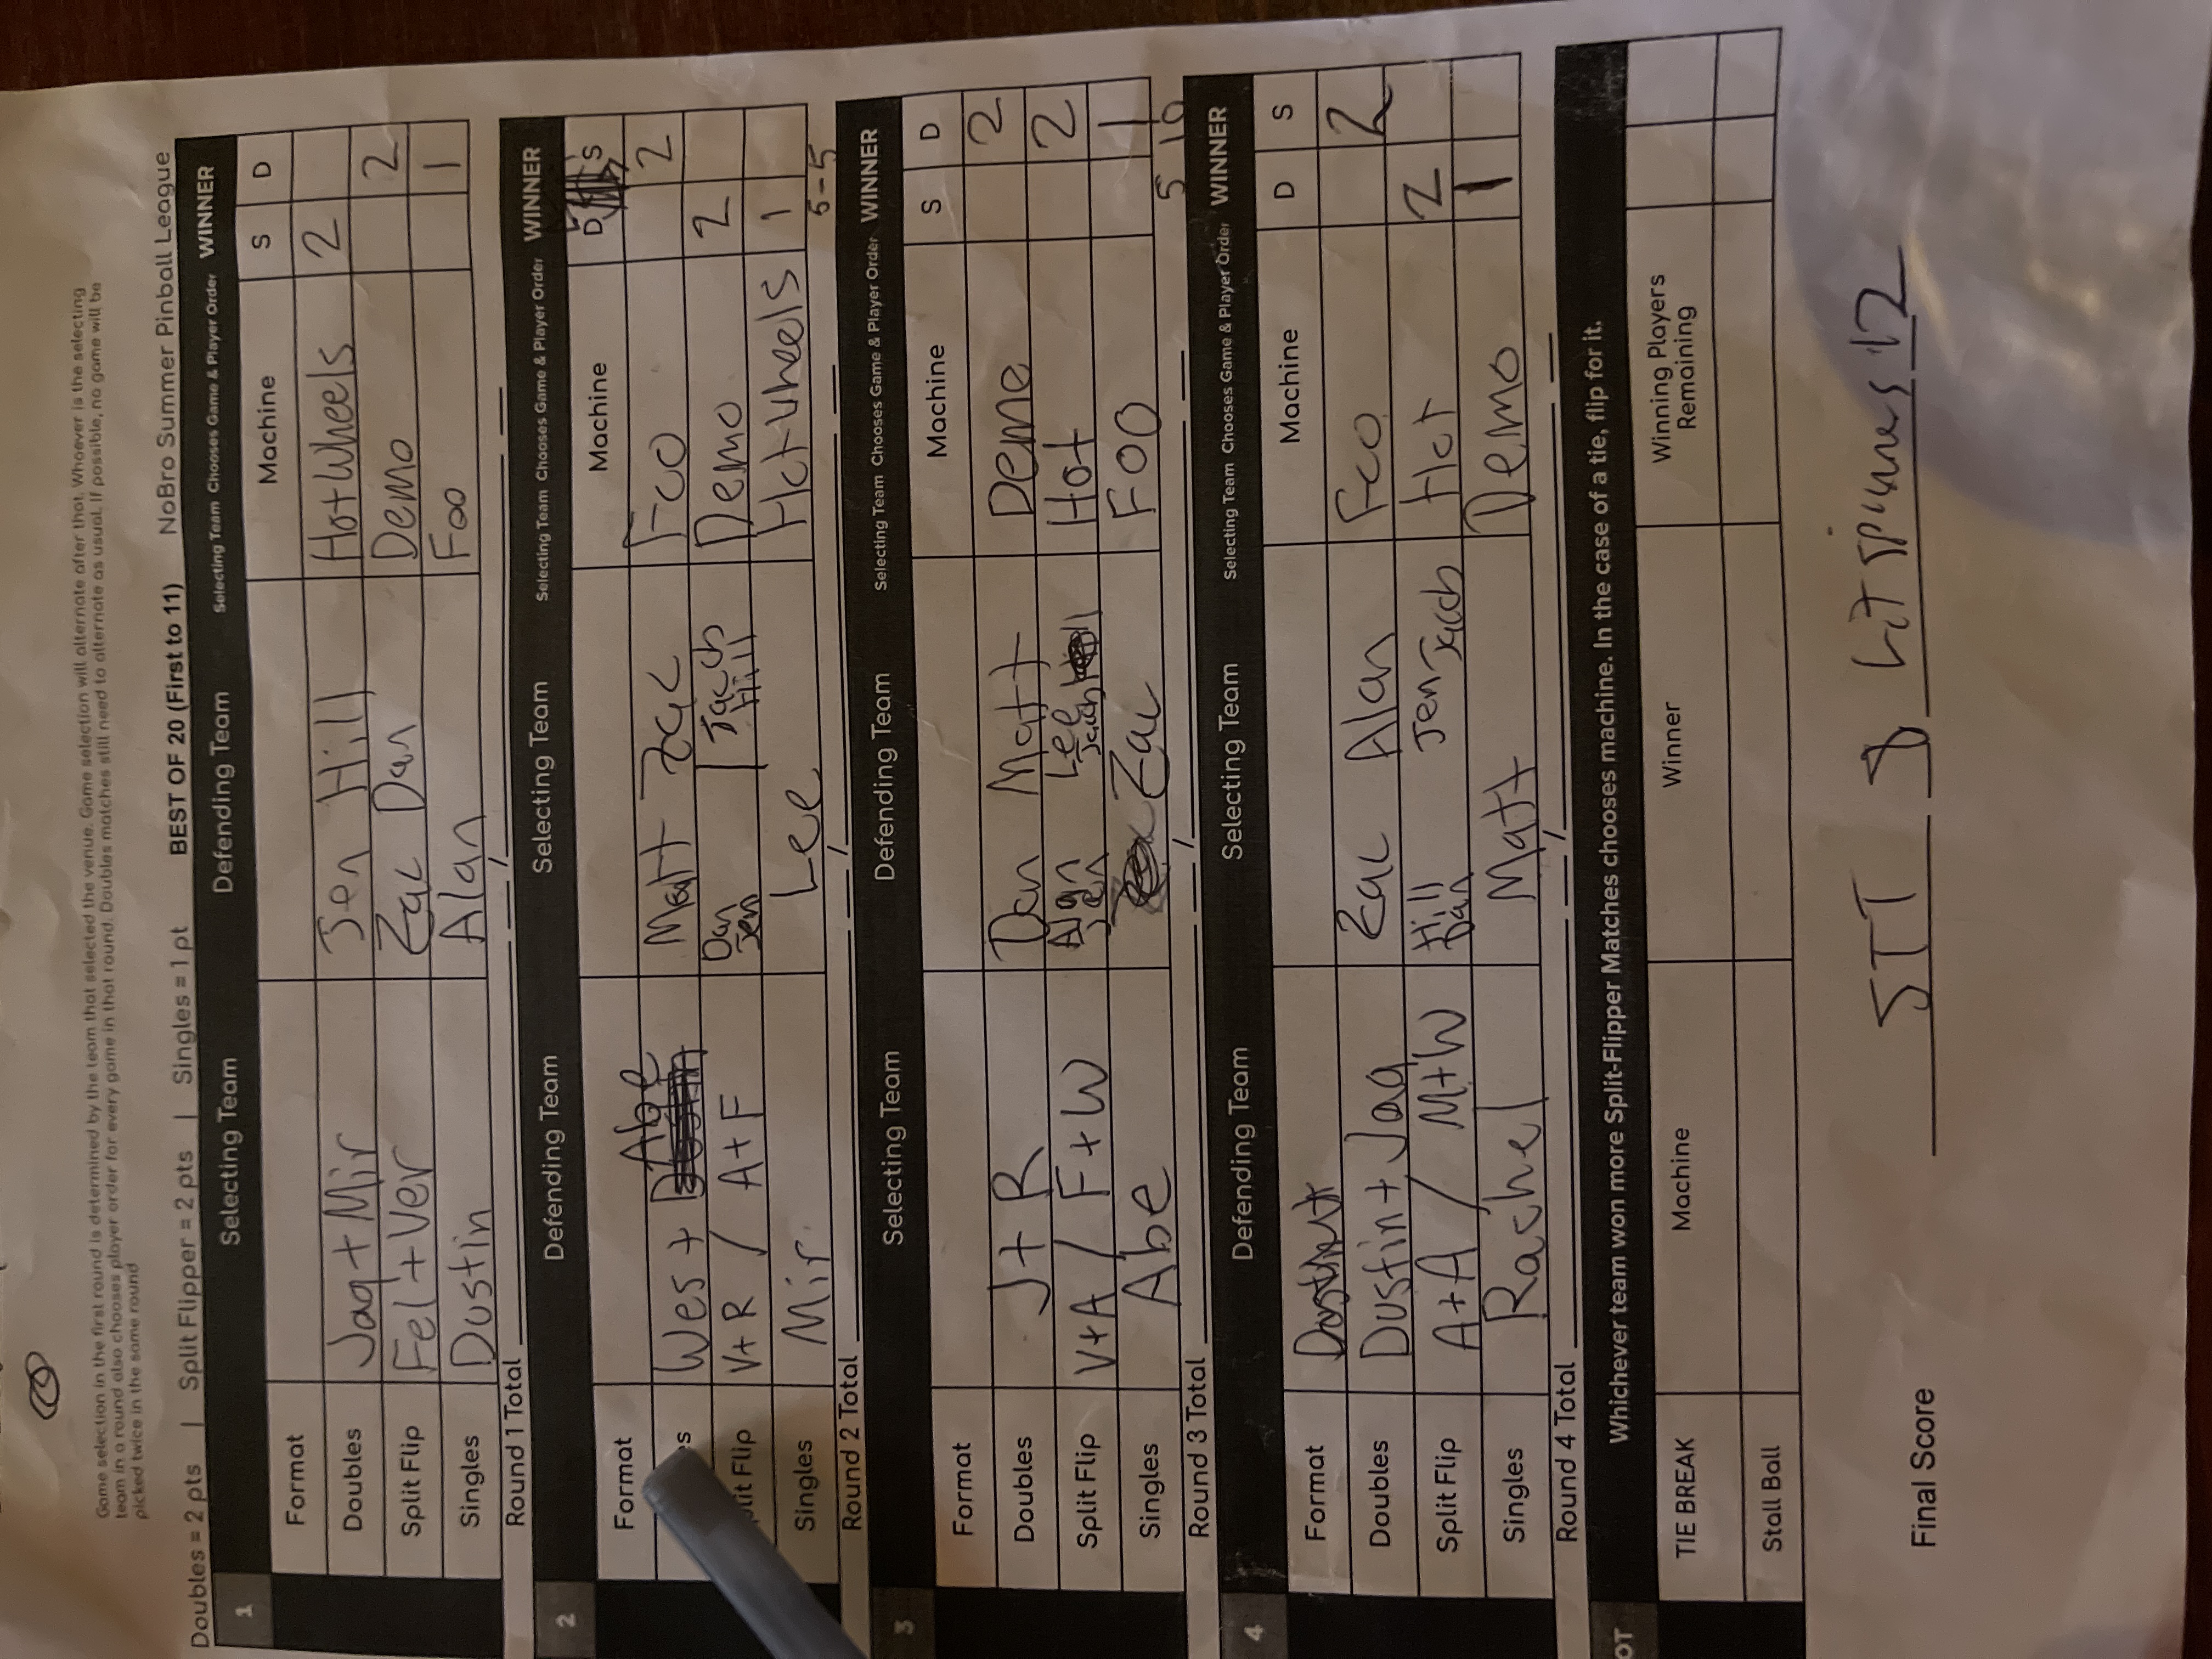 Game selection in the first round is determined by the team that selected the venue. Game selection will alternate after that. Whoever is the selecting
team in a round also chooses player order for every game in that round. Doubles matches still need to alternate as usual. If possible, no game will be
picked twice in the same round
Doubles = 2 pts | Split Flipper = 2 pts | Singles = 1 pt BEST OF 20 (First to 11) NoBro Summer Pinball League
1 Selecting Team Defending Team Selecting Team Chooses Game & Player Order WINNER
Format Machine S D
Doubles Jaq + Mir Jen Hill Hot Wheels 2
Split Flip Fel + Ver Zac Dan Demo 2
Singles Dustin Alan Foo 1
Round 1 Total /
2 Defending Team Selecting Team Selecting Team Chooses Game & Player Order WINNER
Format Machine D S
Wes + Abe Matt Zac Foo 2
Split Flip V+R / A+F Dan Jen / Jach Hill Demo 2
Singles Mir Lee Hot wheels 1
Round 2 Total / 5-5
3 Selecting Team Defending Team Selecting Team Chooses Game & Player Order WINNER
Format Machine S D
Doubles J+R Dan Matt Demo 2
Split Flip V+A / F+W Alan Jen Lee Jach Hot 2
Singles Abe Zac Foo 1
Round 3 Total / 5 10
4 Defending Team Selecting Team Selecting Team Chooses Game & Player Order WINNER
Format Machine D S
Doubles Dustin + Jaq Zac Alan Foo 2
Split Flip A+A / M+W Hill Dan Jen Jach Hot 2
Singles Rachel Matt Demo 1
Round 4 Total /
OT Whichever team won more Split-Flipper Matches chooses machine. In the case of a tie, flip for it.
TIE BREAK Machine Winner Winning Players Remaining
Stall Ball
Final Score STT 8 Lit Spinners 12